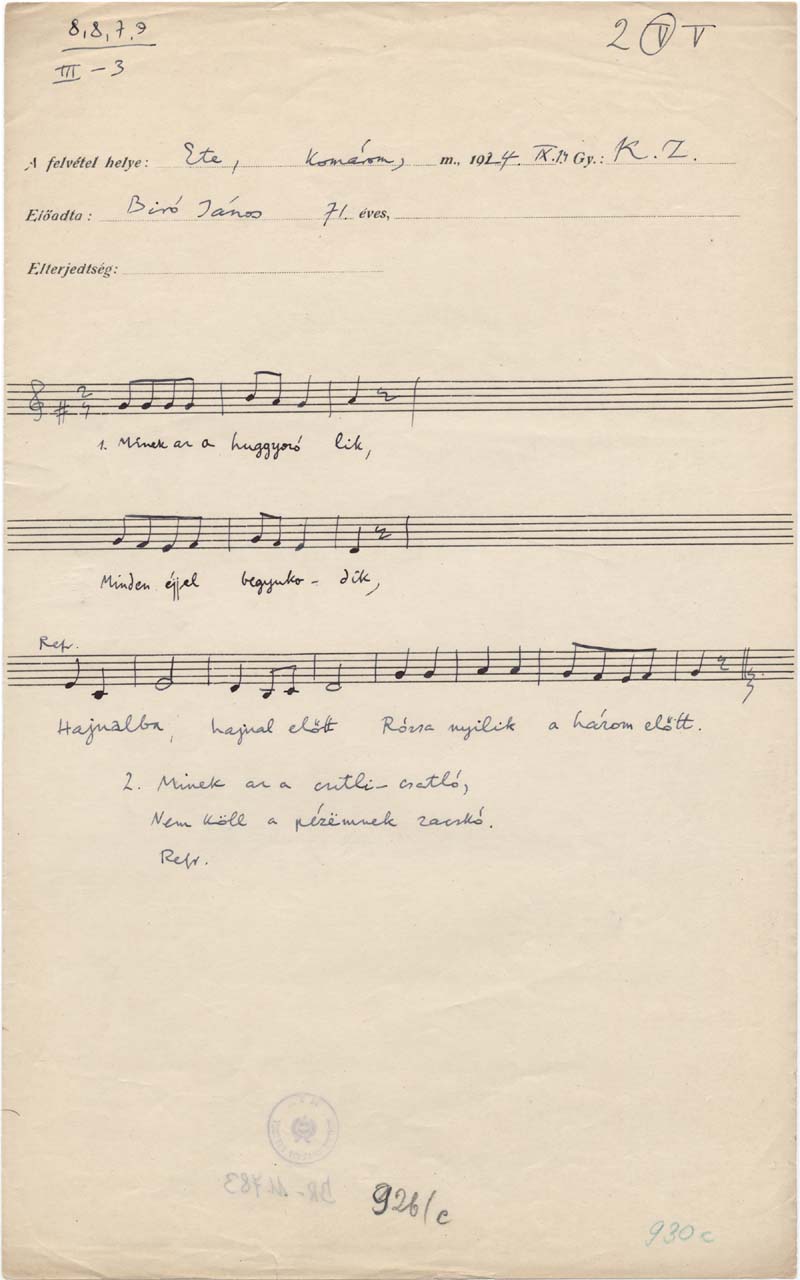 8,8,7,9
III - 3
2 V V
A felvétel helye: Ete, Komárom, m., 1924. IX. Gy.: K. Z.
Előadta: Biró János 71. éves,
Elterjedtség:
2
4
1. Minek az a huggyozó lik,
Minden éjjel begyuko - dik,
Refr.
Hajnalba, hajnal előtt Rózsa nyilik a három előtt.
2. Minek az a csitli-csatló,
Nem köll a pézëmnek zacskó.
Refr.
BR-11783
926/c
930 c